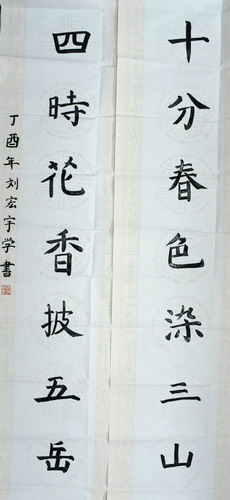 十分春色染三山
四時花香披五岳
丁酉年刘宏宇学書